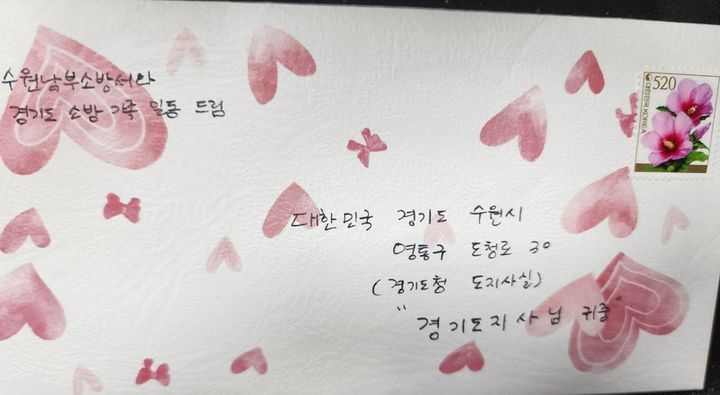 수원남부소방서와
경기도 소방 가족 일동 드림
520
대한민국 KOREA
대한민국 경기도 수원시
영통구 도청로 30
(경기도청 도지사실)
"경기도지사님 귀중"